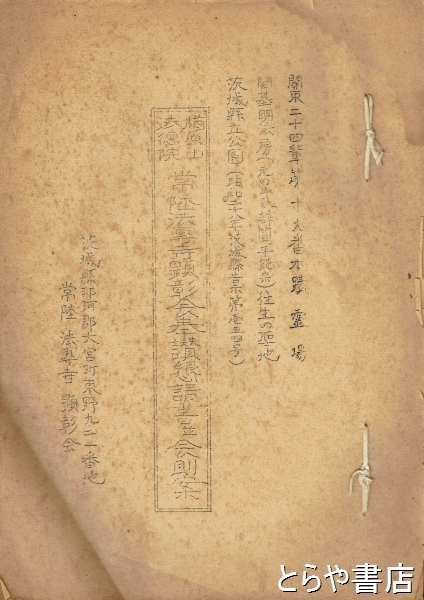 関東二十四輩第十九番本蹟霊場
開基明法房(元の山伏辨円平能永)往生の聖地
茨城縣立公園(昭和二十八年茨城縣告示第壱五四号)
楢原山
法徳院
常陸法専寺顕彰会奉讃懇請書並会則案
茨城縣那珂郡大宮町東野九二一番地
常陸 法専寺 顕彰会
とらや書店